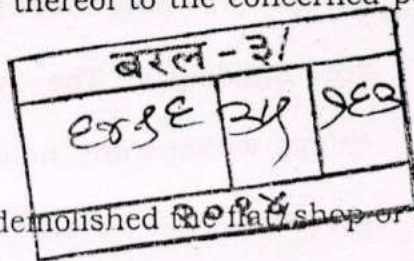 thereof to the concerned
बरल - ३/
६४९६ ३५
२०१४
demolished the flat/ shop or